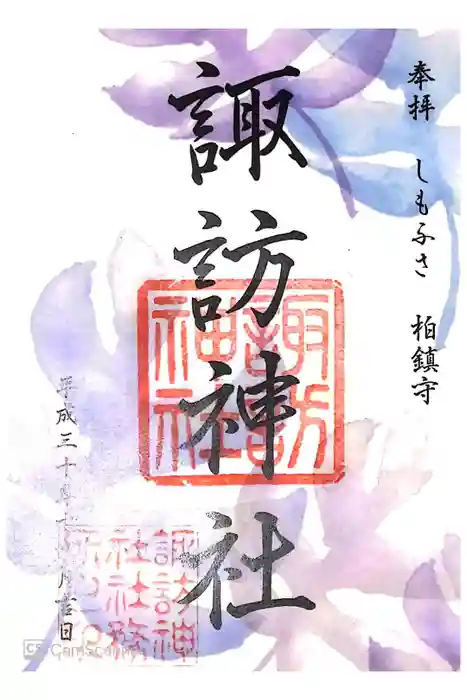 奉拝 しもふさ 柏鎮守
諏訪神社
諏訪神社
平成三十年十 月吉日
諏訪神
社社務
所之印
CS CamScanner